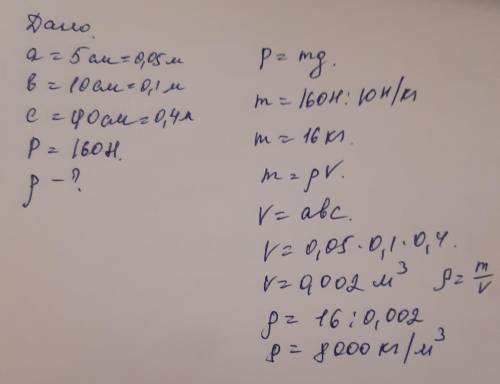 Дано.
a = 5 см = 0,05 м
в = 10 см = 0,1 м
c = 40 см = 0,4 м
P = 160 Н.
ρ - ?
P = mg.
m = 160 Н : 10 Н/кг
m = 16 кг.
m = ρV.
V = abc.
V = 0,05 · 0,1 · 0,4.
V = 0,002 м³ ρ = m/V
ρ = 16 : 0,002
ρ = 8000 кг/м³